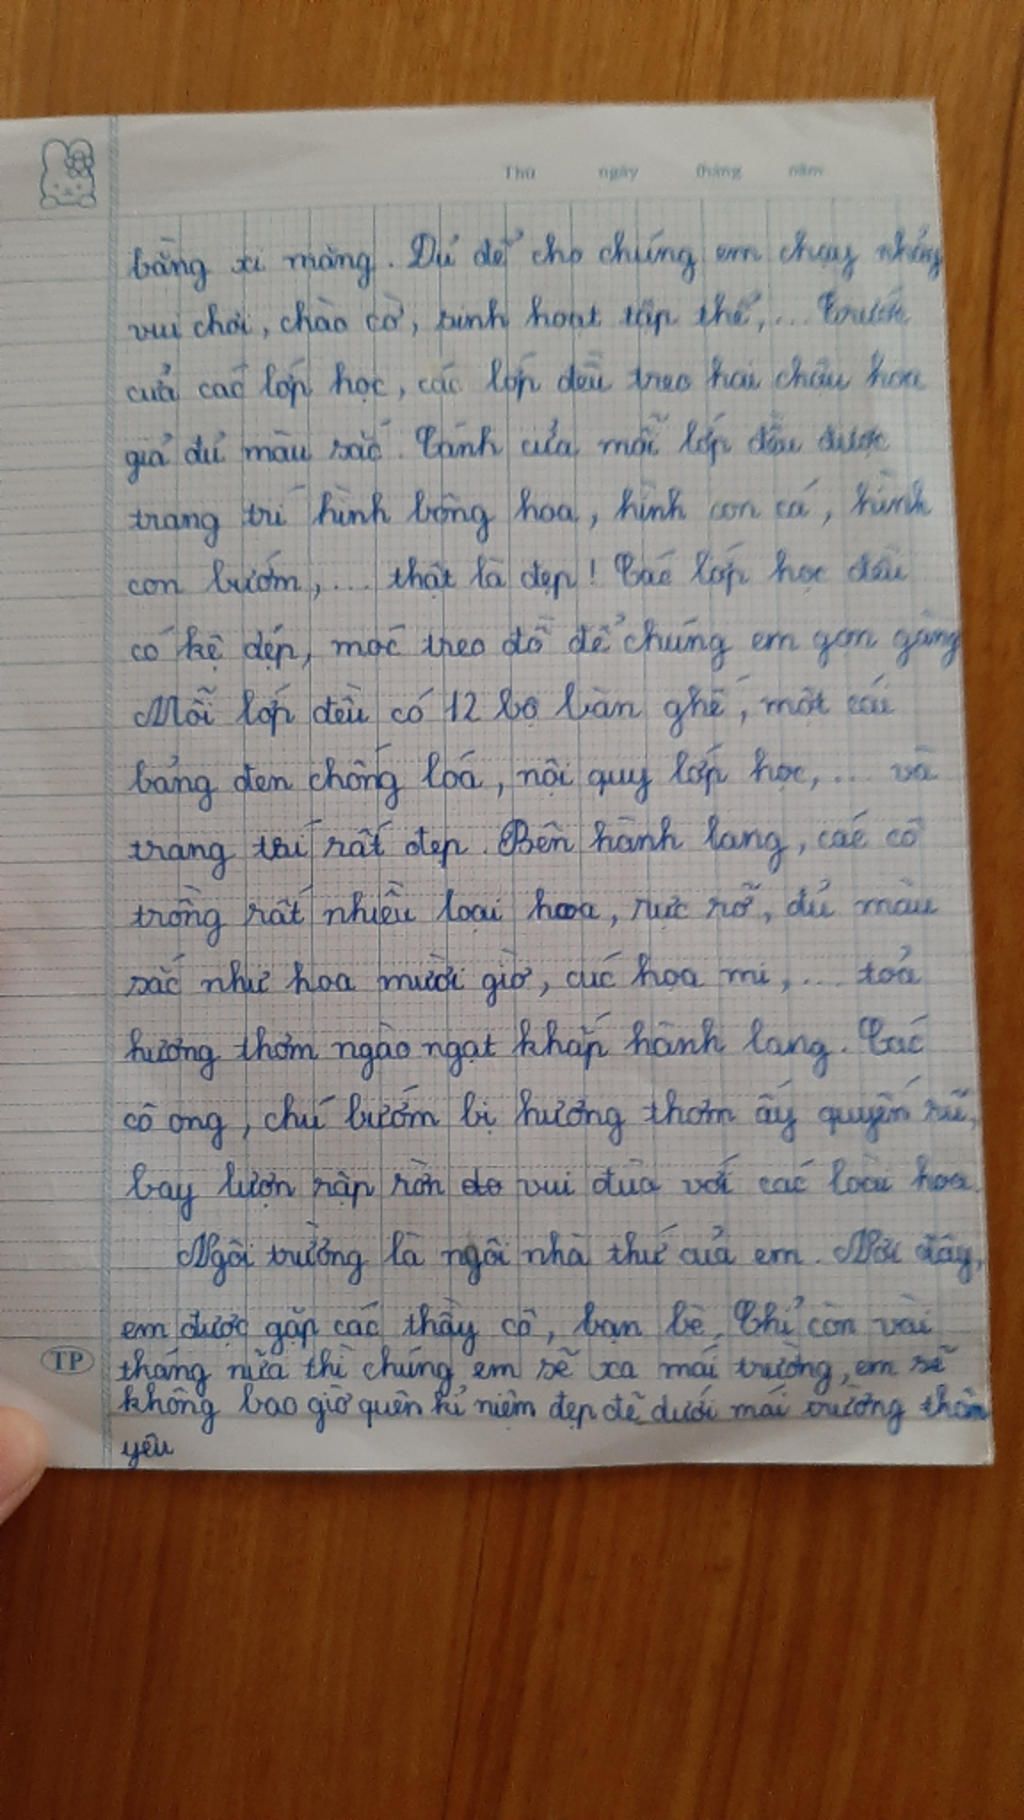 Thứ ngày tháng năm
bằng xi măng. Đủ để cho chúng em chạy nhảy
vui chơi, chào cờ, sinh hoạt tập thể,... Trước
cửa các lớp học, các lớp đều treo hai chậu hoa
giả đủ màu sắc. Cánh cửa mỗi lớp đều được
trang trí hình bông hoa, hình con cá, hình
con bướm,... thật là đẹp! Các lớp học đều
có kệ dép, móc treo đồ để chúng em gọn gàng
Mỗi lớp đều có 12 bộ bàn ghế, một cái
bảng đen chống loá, nội quy lớp học,... và
trang trí rất đẹp. Bên hành lang, các cô
trồng rất nhiều loại hoa, rực rỡ, đủ màu
sắc như hoa mười giờ, cúc họa mi,... toả
hương thơm ngào ngạt khắp hành lang. Các
cô ong, chú bướm bị hương thơm ấy quyến rũ,
bay lượn rập rờn vui đùa với các loài hoa.
Ngôi trường là ngôi nhà thứ của em. Nơi đây,
em được gặp các thầy cô, bạn bè. Chỉ còn vài
tháng nữa thì chúng em sẽ xa mái trường, em sẽ
không bao giờ quên kỉ niệm đẹp đẽ dưới mái trường thân
yêu
TP